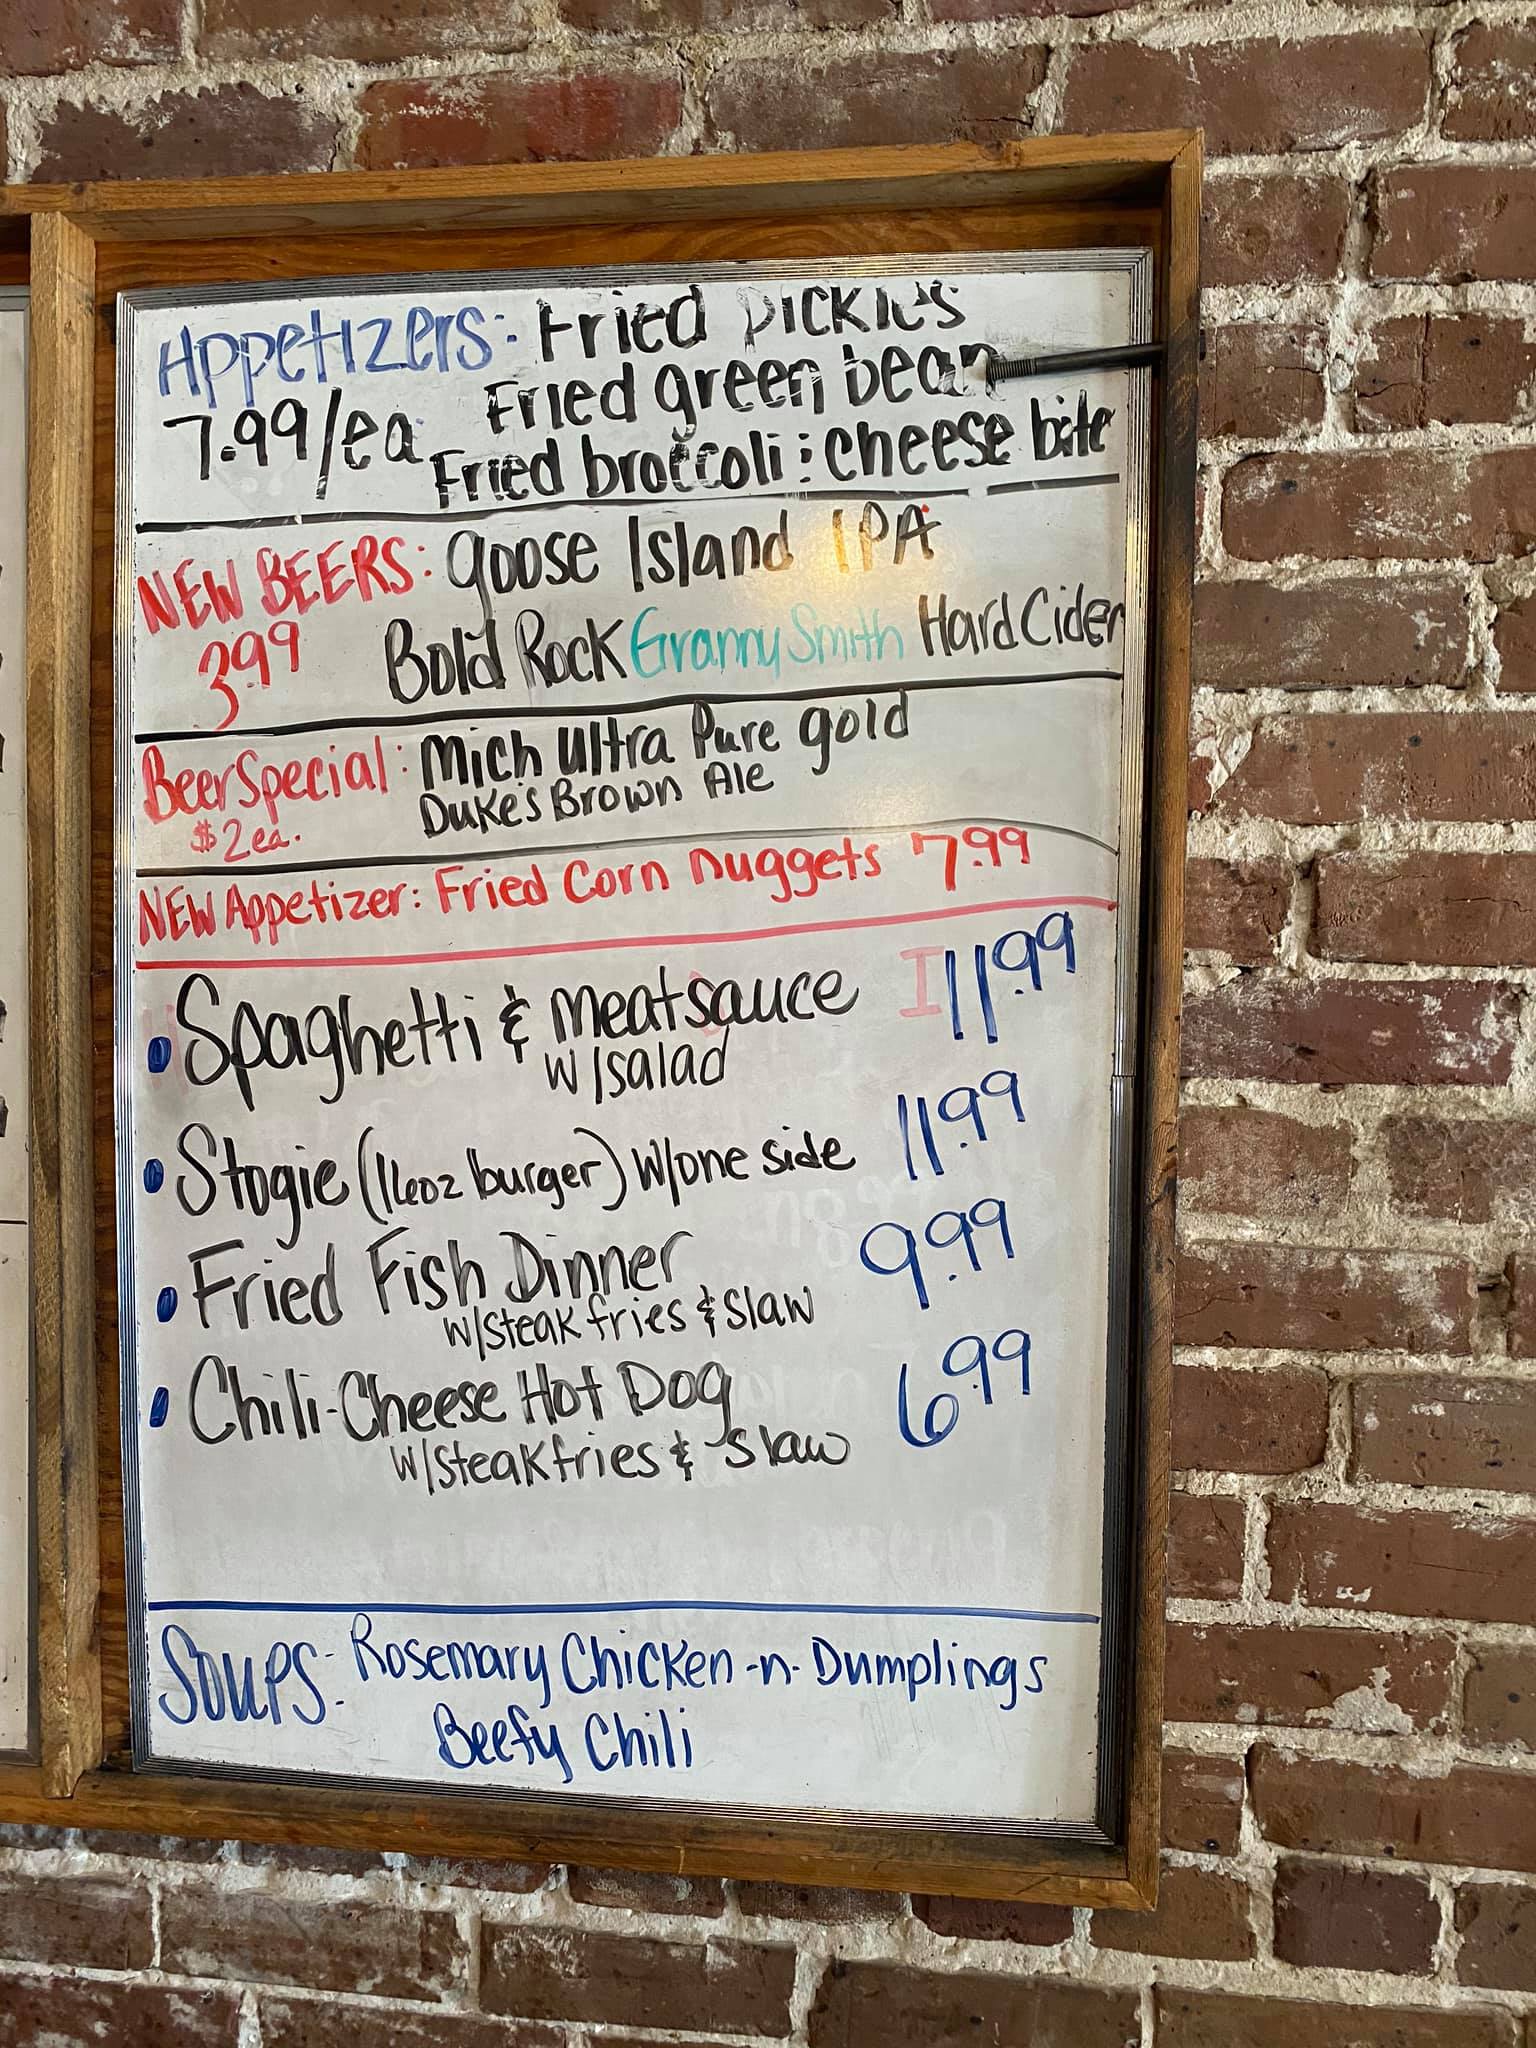 Appetizers: Fried Pickles
7.99/ea Fried green bean
Fried broccoli & cheese bite
NEW BEERS: Goose Island IPA
3.99 Bold Rock Granny Smith Hard Cider
Beer Special: Mich Ultra Pure gold
$2 ea. Duke's Brown Ale
NEW Appetizer: Fried Corn Nuggets 7.99
• Spaghetti & Meatsauce 11.99
w/salad
• Stogie (16oz burger) w/one side 11.99
• Fried Fish Dinner 9.99
w/steak fries & slaw
• Chili-Cheese Hot Dog 6.99
w/steak fries & slaw
Soups: Rosemary Chicken -n- Dumplings
Beefy Chili